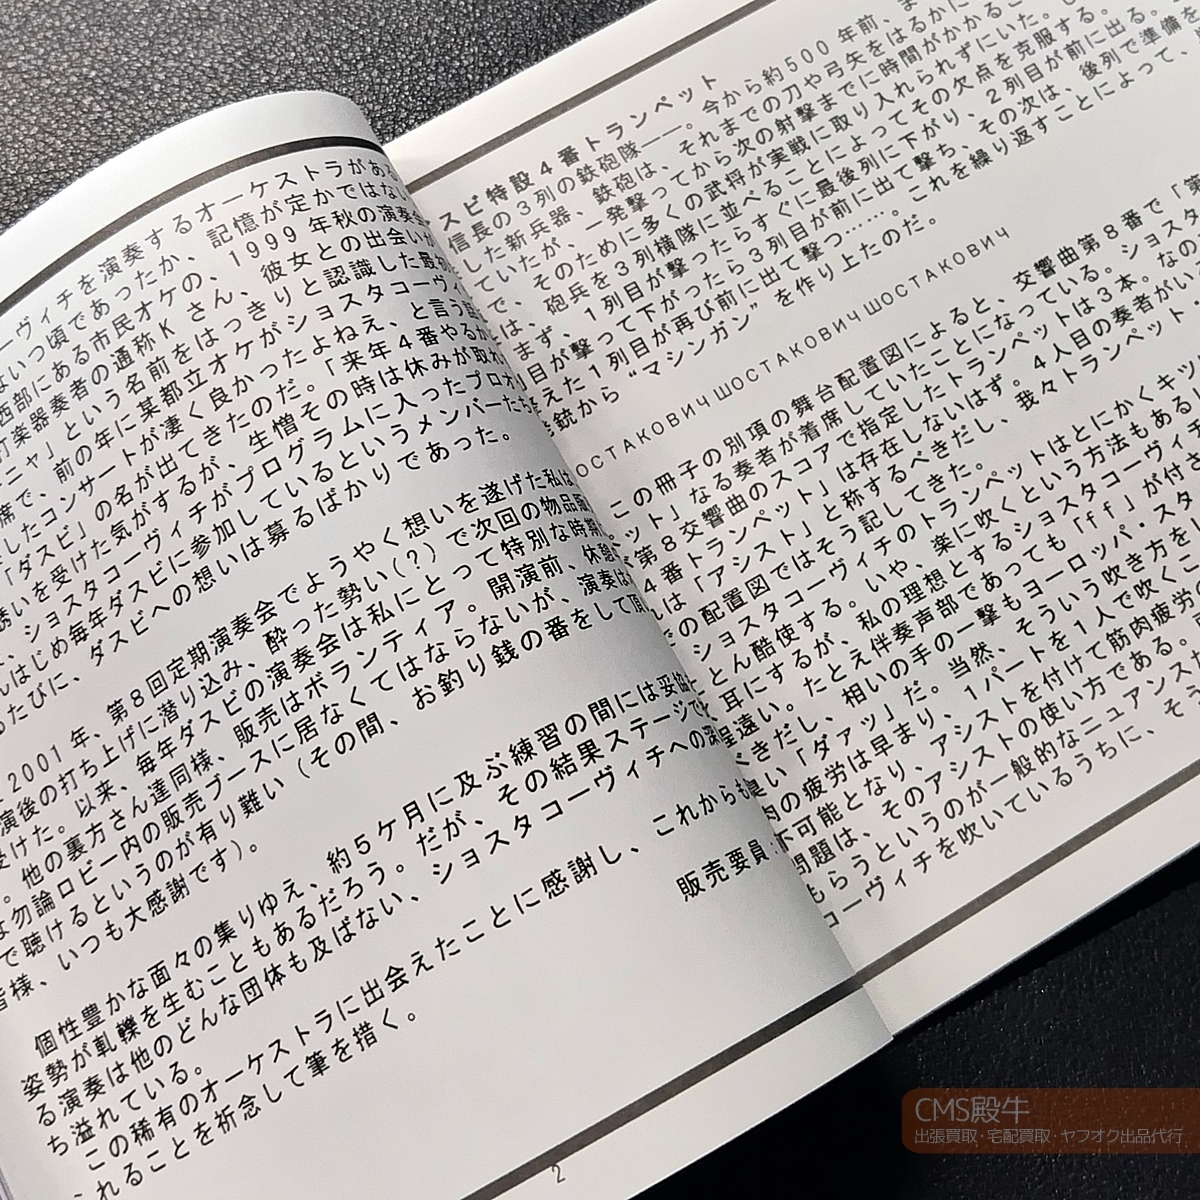 ーヴィチを演奏するオーケストラがある
ないつ頃であったか、記憶が定かではない
西部にある市民オケの、1999年秋の演奏会
打楽器奏者の通称Kさん、彼女との出会いが
ニャ」という名前をはっきりと認識した最初
席で、前の年に某都立オケがショスタコーヴィ
したコンサートが凄く良かったよねえ、と言う話
「ダスビ」の名が出てきたのだ。「来年4番やるか
誘いを受けた気がするが、生憎その時は休みが取れ
、ショスタコーヴィチがプログラムに入ったプロオ
んはじめ毎年ダスビに参加しているというメンバーたち
るたびに、ダスビへの想いは募るばかりであった。
2001年、第8回定期演奏会でようやく想いを遂げた私は
演後の打ち上げに潜り込み、酔った勢い(?)で次回の物品販
受けた。以来、毎年ダスビの演奏会は私にとって特別な時期
。他の裏方さん達同様、販売はボランティア。開演前、休憩
は勿論ロビー内の販売ブースに居なくてはならないが、演奏は
で聴けるというのが有り難い(その間、お釣り銭の番をして頂
皆様、いつも大感謝です)。
個性豊かな面々の集りゆえ、約5ケ月に及ぶ練習の間には妥協
姿勢が軋轢を生むこともあるだろう。だが、その結果ステージで
る演奏は他のどんな団体も及ばない、ショスタコーヴィチへの深
ち溢れている。
この稀有のオーケストラに出会えたことに感謝し、これからも
れることを祈念して筆を措く。
販売要員
2
スビ特設4番トランペット
信長の3列の鉄砲隊――。今から約500年前、ま
した新兵器、鉄砲は、それまでの刀や弓矢をはるかに
ていたが、一発撃ってから次の射撃までに時間がかかるこ
、そのために多くの武将が実戦に取り入れられずにいた。
で、砲兵を3列横隊に並べることによってその欠点を克服する。
まず、1列目が撃ったらすぐに最後列に下がり、2列目が前に出る。
目が撃って下がったら3列目が前に出て撃ち、その次は、後列で準備を
えた1列目が再び前に出て撃つ……。これを繰り返すことによって、
銃から“マシンガン”を作り上たのだ。
ОСТАКОВИЧШОСТАКОВИЧШОСТАКОВИЧ
この冊子の別項の舞台配置図によると、交響曲第8番で「第
ット」なる奏者が着席していたことになっている。ショスタ
第8交響曲のスコアで指定したトランペットは3本。なの
4番トランペット」は存在しないはず。4人目の奏者がい
は「アシスト」と称するべきだし、我々トランペット
の配置図ではそう記してきた。
ショスタコーヴィチのトランペットはとにかくキツ
とん酷使する。いや、楽に吹くという方法もある
耳にするが、私の理想とするショスタコーヴィチ
程遠い。たとえ伴奏声部であっても「ff」が付さ
べきだし、相いの手の一撃もヨーロッパ・スタ
臭い「ダァッ」だ。当然、そういう吹き方を
肉の疲労は早まり、1パートを1人で吹くこ
不可能となり、アシストを付けて筋肉疲労
問題は、そのアシストの使い方である。
もらうというのが一般的なニュアンスだ
コーヴィチを吹いているうちに、そう
CMS殿牛
出張買取・宅配買取・ヤフオク出品代行